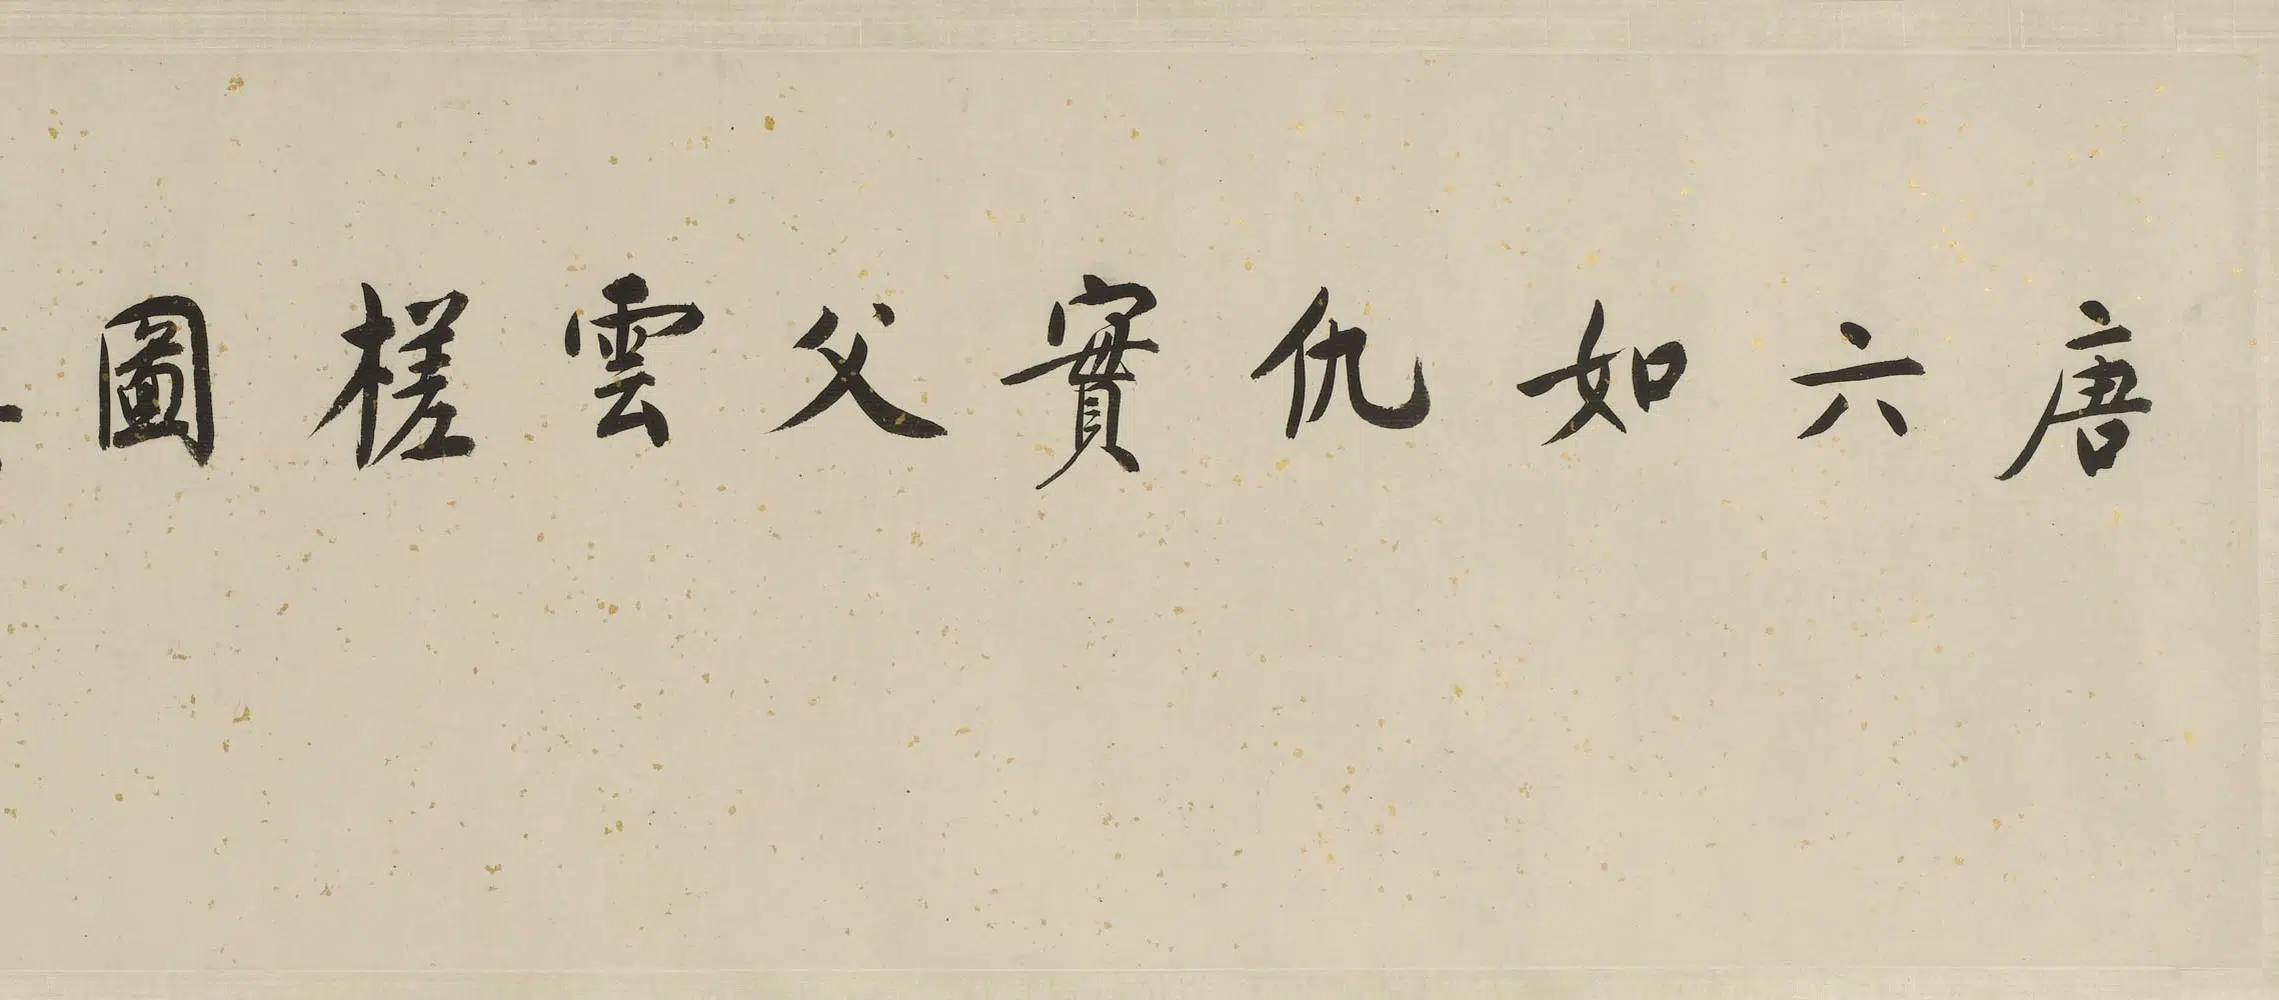 唐六如仇實父雲槎圖